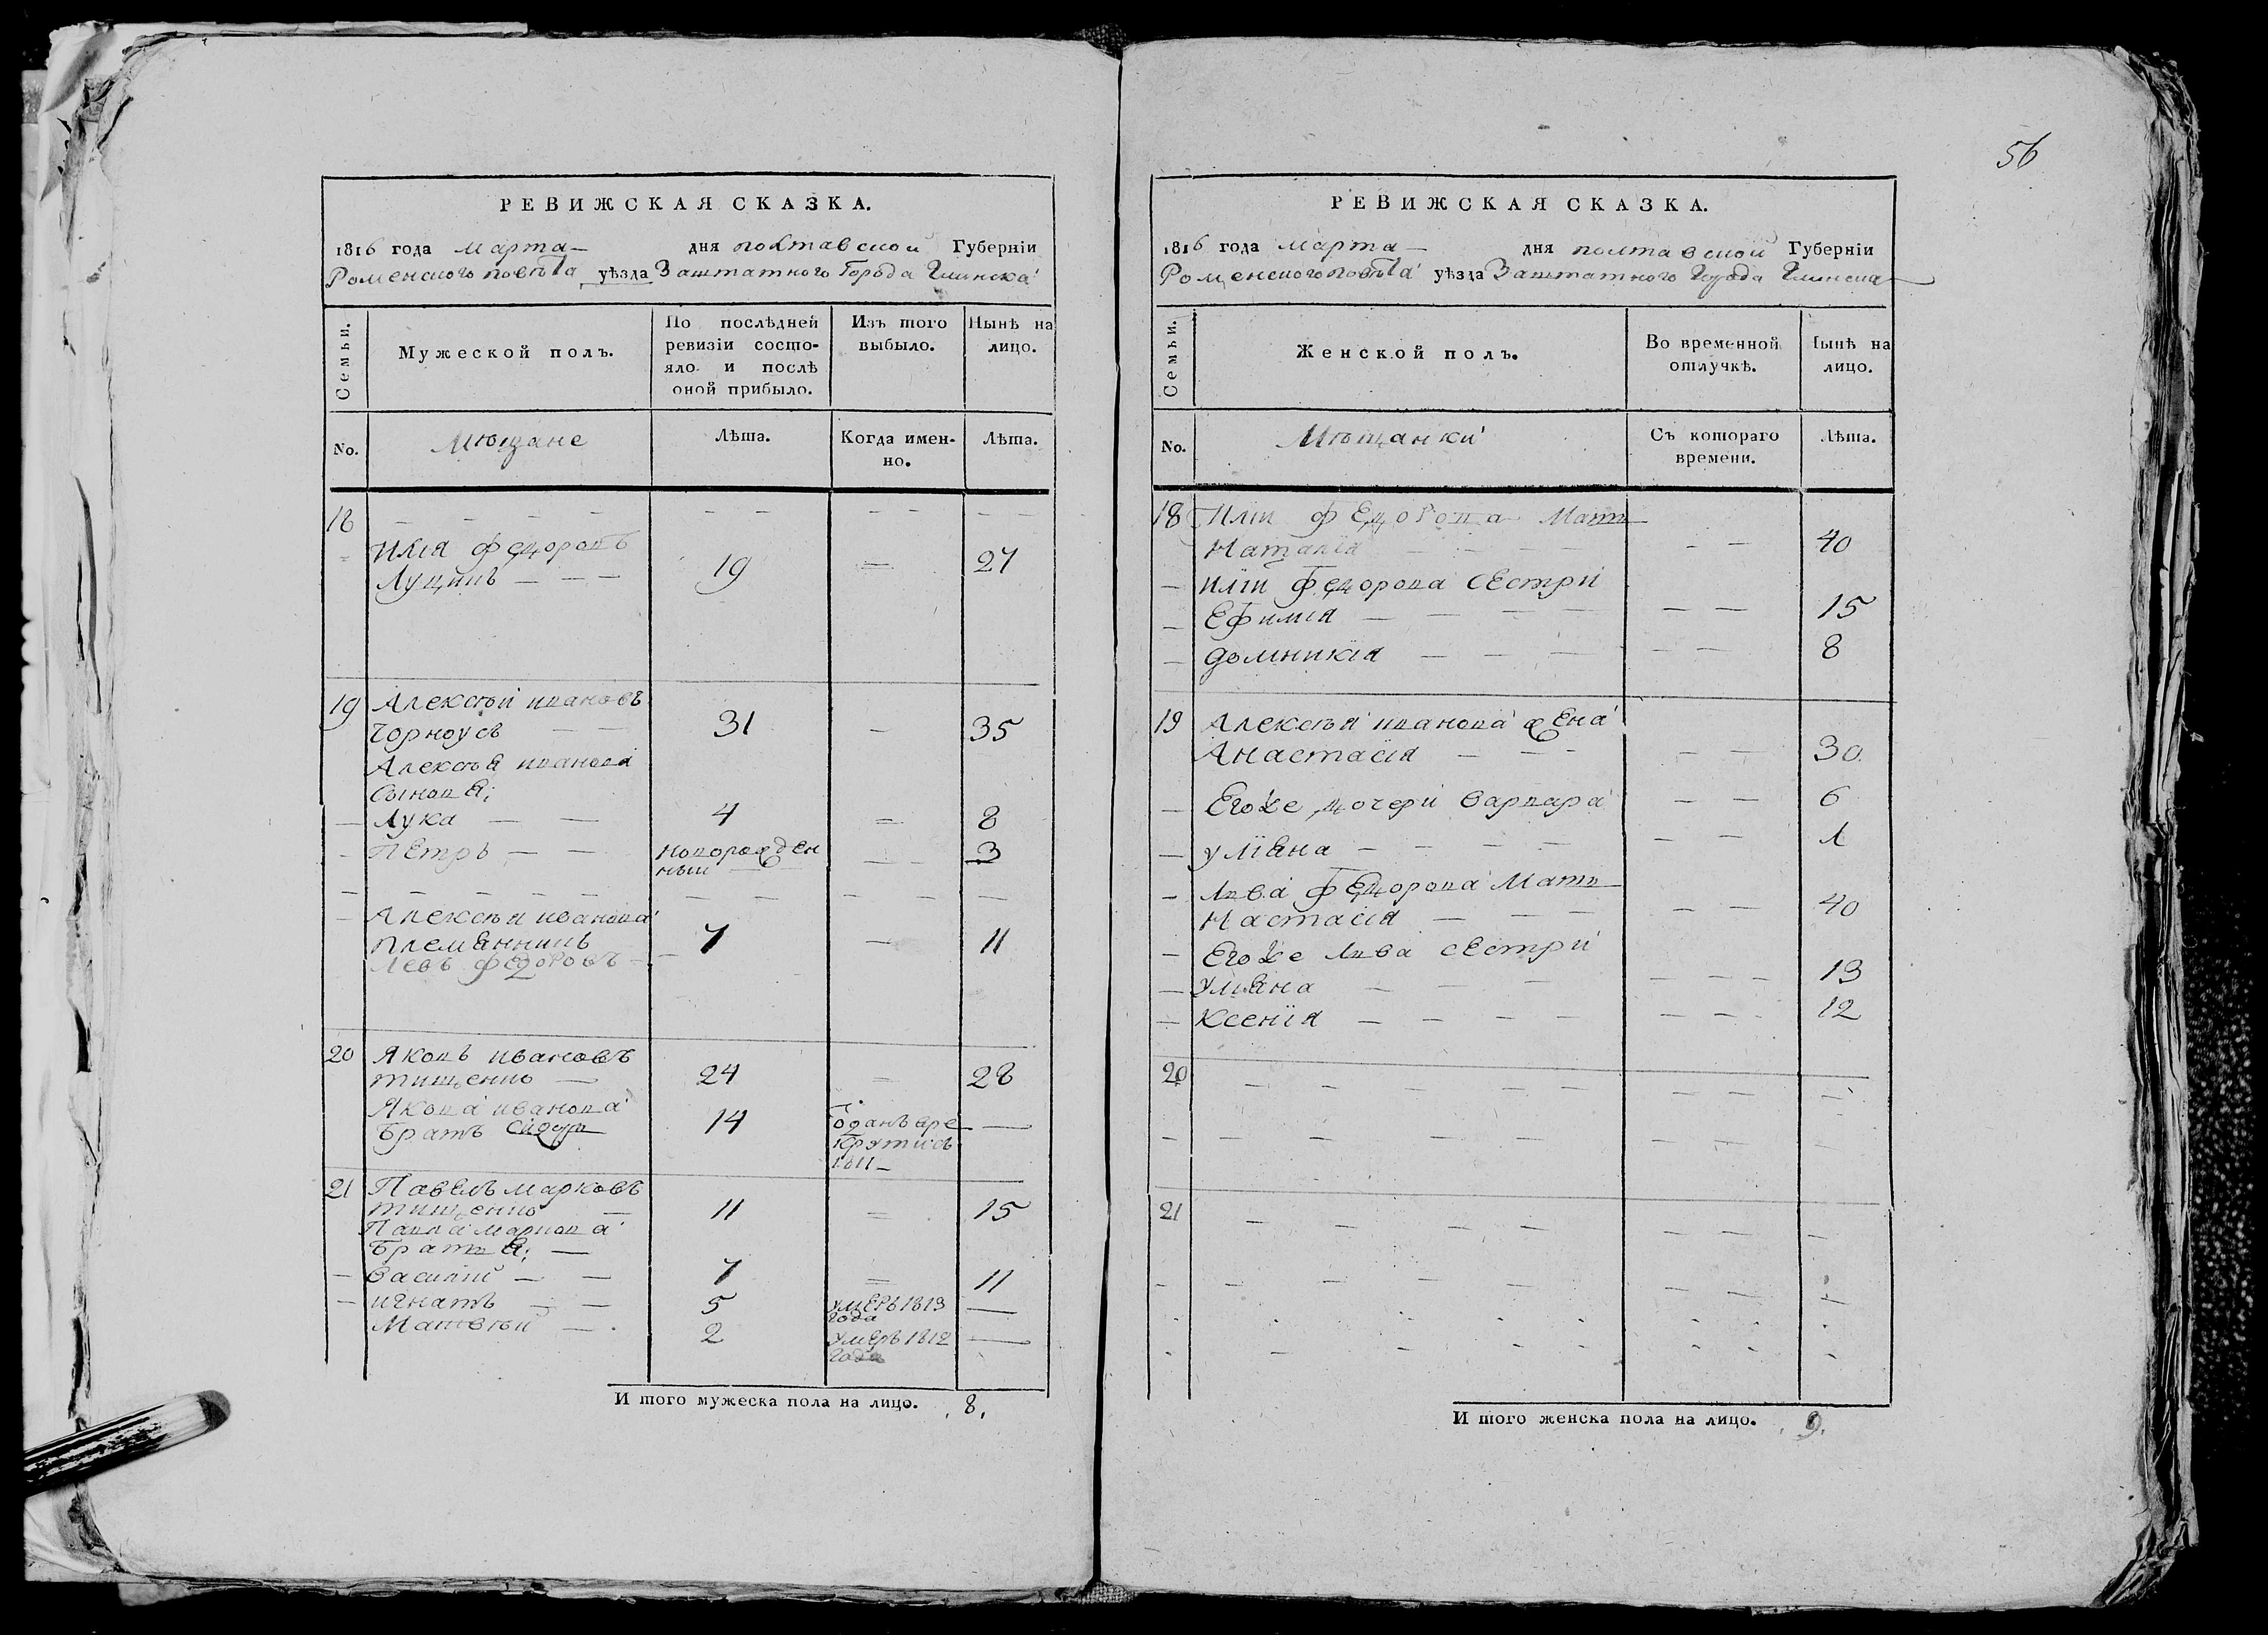 56
РЕВИЖСКАЯ СКАЗКА.
1816 года марта — дня полтавской Губерніи
Роменского повѣта уѣзда Заштатного Города Глинска
Семьи.
Мужеской полъ.
По послѣдней ревизіи состо-
яло и послѣ
оной прибыло.
Изъ того
выбыло.
Нынѣ на
лицо.
No.
Мѣщане
Лѣта.
Когда имен-
но.
Лѣта.
18 — — — —
Илія федоровъ
Луцикъ — — — 19 — 27
19 Алексѣй ивановъ
Чорноусъ — — 31 — 35
Алексѣя иванова
Сыновя:
— Лука — — 4 — 8
— Петръ — — новорожден
ный — 3
— Алексѣя иванова
племянникъ 7 — 11
Левъ федоровъ —
20 Яковъ ивановъ
тищенко — 24 — 28
Якова иванова
братъ Сидоръ 14 Отданъ вре
крутисъ
1811 —
21 Павелъ марковъ
тищенко — 11 — 15
Павла маркова
братья: —
— василій — — 7 — 11
— игнатъ — — 5 умеръ 1813 —
года
Матвѣй — 2 умеръ 1812 —
года
И того мужеска пола на лицо. 8.
РЕВИЖСКАЯ СКАЗКА.
1816 года марта — дня полтавской Губерніи
Роменского повѣта уѣзда Заштатного Города Глинска
Семьи.
Женской полъ.
Во временной
отлучкѣ.
Нынѣ на
лицо.
No.
Мѣщанки
Съ котораго
времени.
Лѣта.
18 Иліи федорова Мать
Наталія — — — — — 40
— Иліи федорова сестри
— Ефимія — — — — — 15
— Домникія — — — — — 8
19 Алексѣя иванова жена
Анастасія — — — — — 30
— Егоже дочери варвара — — 6
— уліяна — — — — — — 1
— Лва федорова Мать
Настасія — — — — — 40
— Егоже Лва сестри
— Уляна — — — — — — 13
— Ксенія — — — — — — — 12
20
21
И того женска пола на лицо. 9.